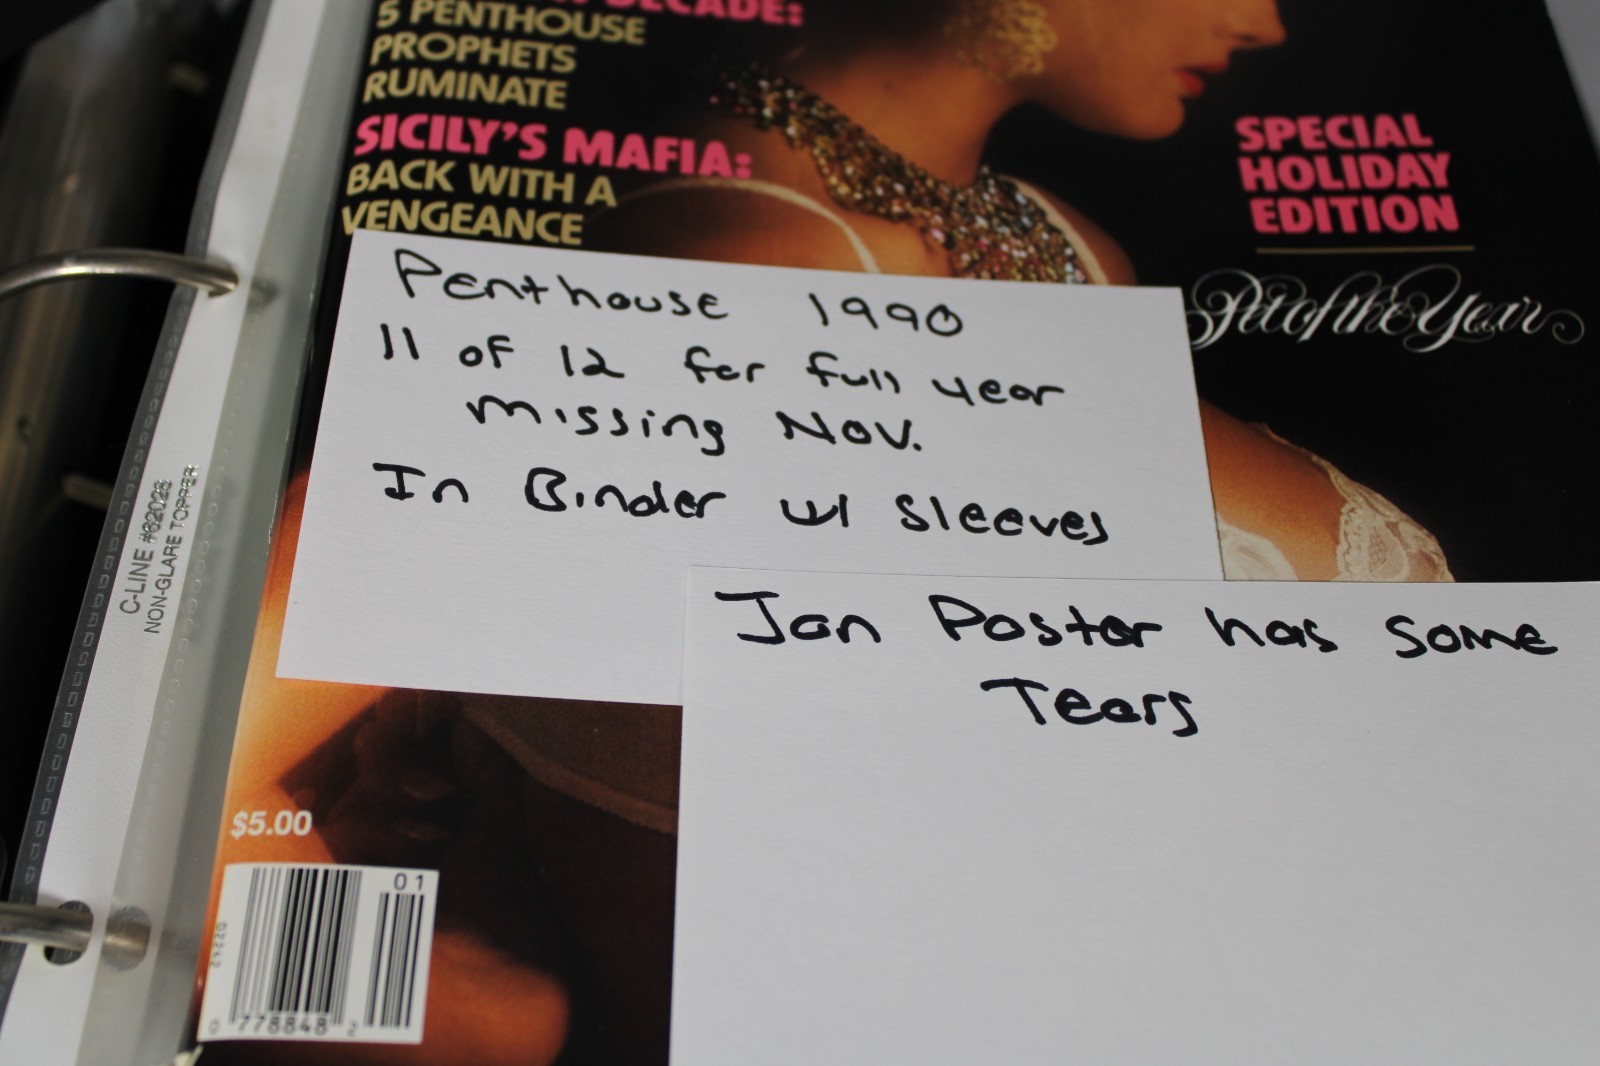 DECADE:
5 PENTHOUSE
PROPHETS
RUMINATE
SICILY'S MAFIA:
BACK WITH A
VENGEANCE
SPECIAL
HOLIDAY
EDITION
Pet of the Year
Penthouse 1990
11 of 12 for full year
missing Nov.
In Binder w/ sleeves
Jan Poster has some
Tears
C-LINE #62028
NON-GLARE TOPPER
$5.00
01
02262
0 778848 2